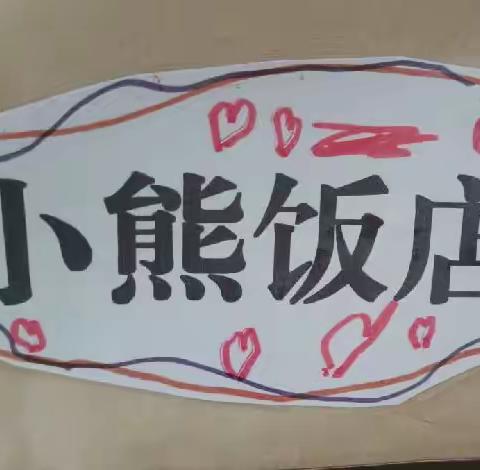 小熊饭店